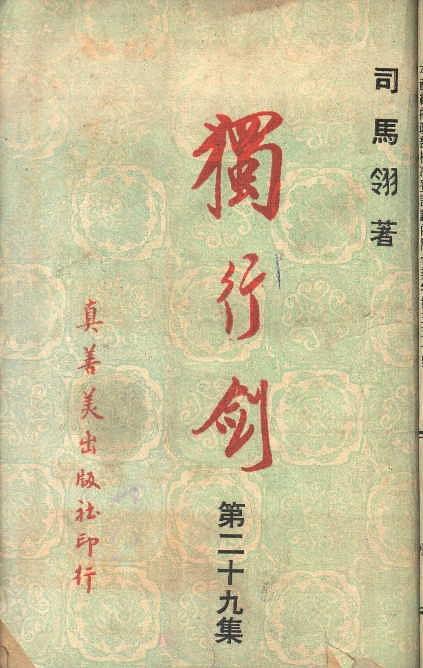 司馬翎著
獨行劍
第二十九集
真善美出版社印行